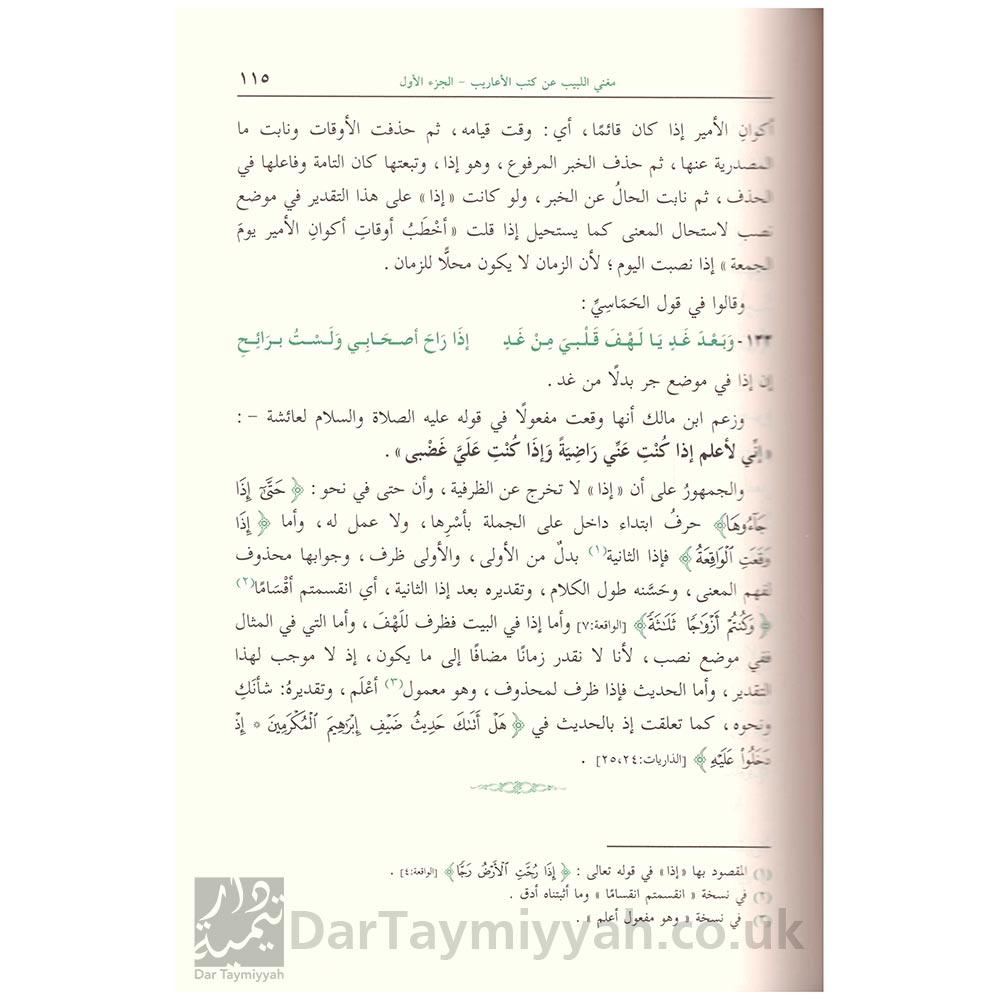 مغني اللبيب عن كتب الأعاريب - الجزء الأول
١١٥
أكوانِ الأمير إذا كان قائمًا، أي: وقت قيامه، ثم حذفت الأوقات ونابت ما
المصدرية عنها، ثم حذف الخبر المرفوع، وهو إذا، وتبعتها كان التامة وفاعلها في
الحذف، ثم نابت الحالُ عن الخبر، ولو كانت «إذا» على هذا التقدير في موضع
نصب لاستحال المعنى كما يستحيل إذا قلت «أخْطَبُ أوقاتِ أكوانِ الأمير يومَ
الجمعة» إذا نصبت اليوم؛ لأن الزمان لا يكون محلًّا للزمان.
وقالوا في قول الحَمَاسِيِّ:
١٣٣- وَبَعْدَ غَدٍ يَا لَهْفَ قَلْبِيَ مِنْ غَدٍ إذَا رَاحَ أصحَابِي وَلَسْتُ برَائِحِ
إن إذا في موضع جر بدلًا من غد.
وزعم ابن مالك أنها وقعت مفعولًا في قوله عليه الصلاة والسلام لعائشة -:
«إنِّي لأعلم إذا كُنْتِ عَنِّي رَاضِيَةً وَإذَا كُنْتِ عَلَيَّ غَضْبى».
والجمهورُ على أن «إذا» لا تخرج عن الظرفية، وأن حتى في نحو: ﴿حَتَّىٰٓ إِذَا
جَآءُوهَا﴾ حرفُ ابتداء داخل على الجملة بأسْرِها، ولا عمل له، وأما ﴿إِذَا
وَقَعَتِ ٱلْوَاقِعَةُ﴾ فإذا الثانية(١) بدلٌ من الأولى، والأولى ظرف، وجوابها محذوف
لفهم المعنى، وحَسَّنه طول الكلام، وتقديره بعد إذا الثانية، أي انقسمتم أقْسَامًا(٢)
﴿وَكُنتُمْ أَزْوَٰجًا ثَلَٰثَةً﴾ [الواقعة:٧] وأما إذا في البيت فظرف للَهْفَ، وأما التي في المثال
ففي موضع نصب، لأنا لا نقدر زمانًا مضافًا إلى ما يكون، إذ لا موجب لهذا
التقدير، وأما الحديث فإذا ظرف لمحذوف، وهو معمول(٣) أعْلَم، وتقديرهُ: شأنَكِ
ونحوه، كما تعلقت إذ بالحديث في ﴿هَلْ أَتَىٰكَ حَدِيثُ ضَيْفِ إِبْرَٰهِيمَ ٱلْمُكْرَمِينَ * إِذْ
دَخَلُوا۟ عَلَيْهِ﴾ [الذاريات:٢٥،٢٤].
المقصود بها «إذا» في قوله تعالى: ﴿إِذَا رُجَّتِ ٱلْأَرْضُ رَجًّا﴾ [الواقعة:٤].
في نسخة «انقسمتم انقسامًا» وما أثبتناه أدق.
في نسخة «وهو مفعول أعلم».
دار تيمية
Dar Taymiyyah
DarTaymiyyah.co.uk